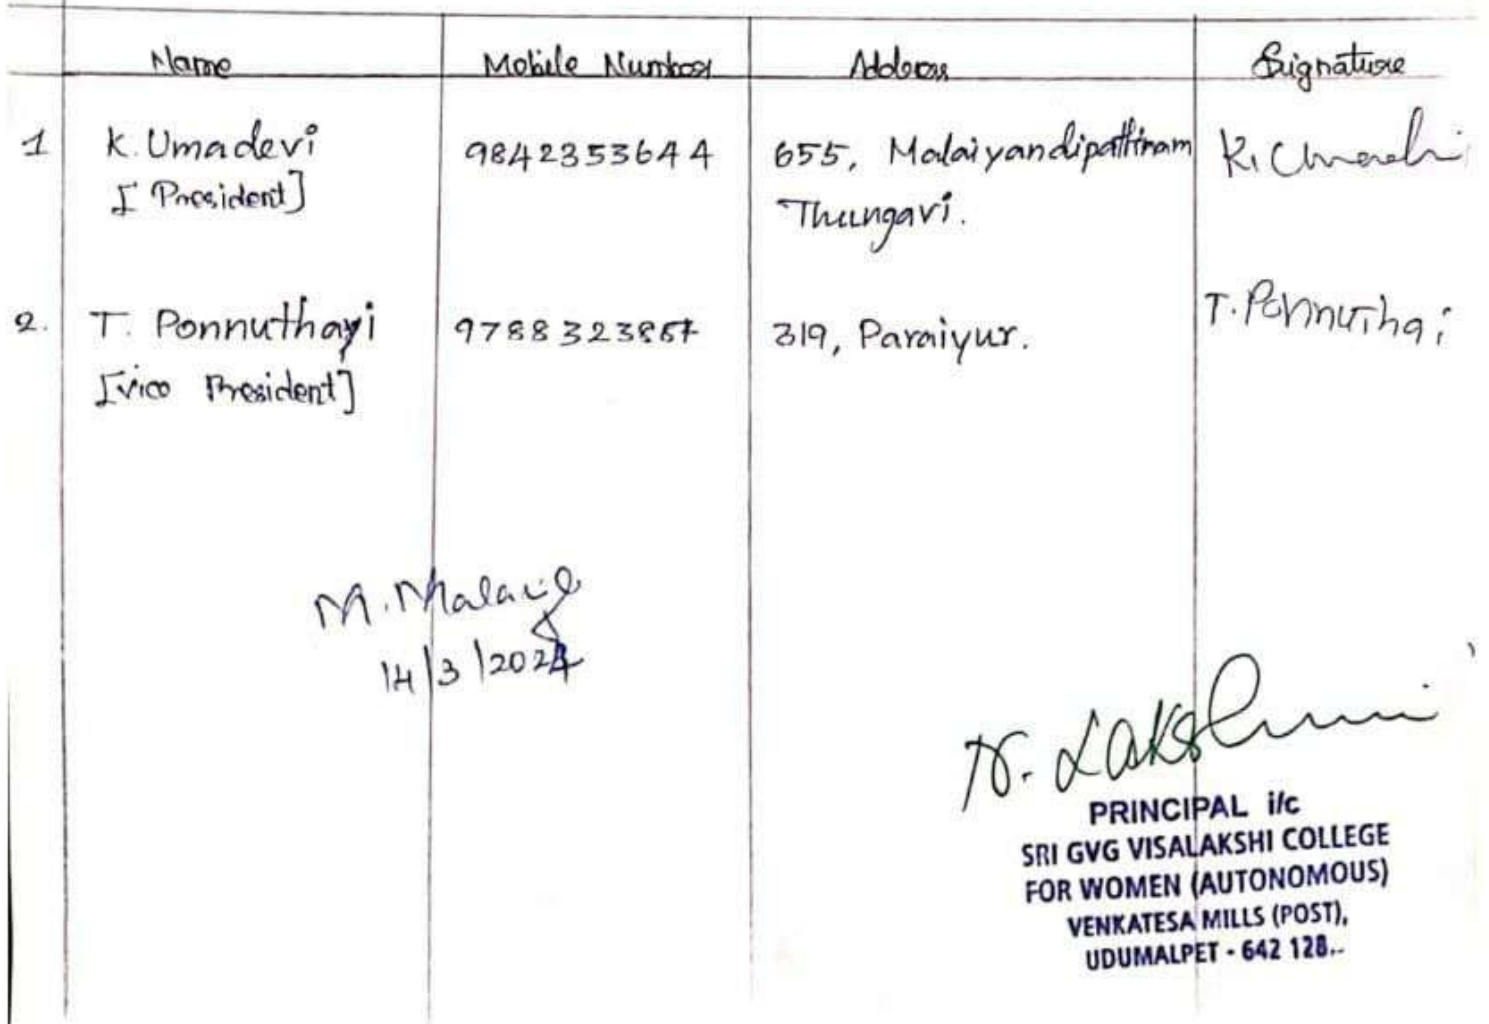 Name Mobile Number Address Signature
1 K. Umadevi 9842353644 655, Malaiyandipattinam K. Umadevi
[President] Thungavi.
2. T. Ponnuthayi 9788323857 319, Paraiyur. T. Ponnuthai
[Vice President]
M.
14/3/2024
N. Lakshmi
PRINCIPAL i/c
SRI GVG VISALAKSHI COLLEGE
FOR WOMEN (AUTONOMOUS)
VENKATESA MILLS (POST),
UDUMALPET - 642 128.